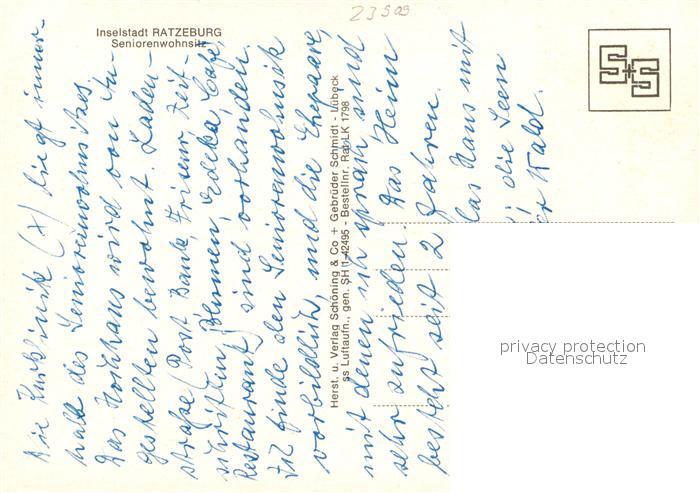 23509
Inselstadt RATZEBURG
Seniorenwohnsitz
S+S
Die Kurklinik (x) liegt inner-
halb des Seniorenwohnsitzes,
Das Hochhaus wird von An-
gestellten bewohnt. Laden-
straße (Post Bank, Friseur Zeit-
schriften, Blumen, Edeka, Cafe,
Restaurant) sind vorhanden.
Ich finde den Seniorenwohnsitz
vorbildlich, und die Ehepaare,
mit denen ich sprach sind
sehr zufrieden. Das Heim
besteht seit 2 Jahren.
das Haus mit
die Seen
Wald.
Herst. u. Verlag Schöning & Co + Gebrüder Schmidt - Lübeck
ss Luftaufn., gen. SH (1-42495 - Bestellnr. Ra LK 1798
privacy protection
Datenschutz